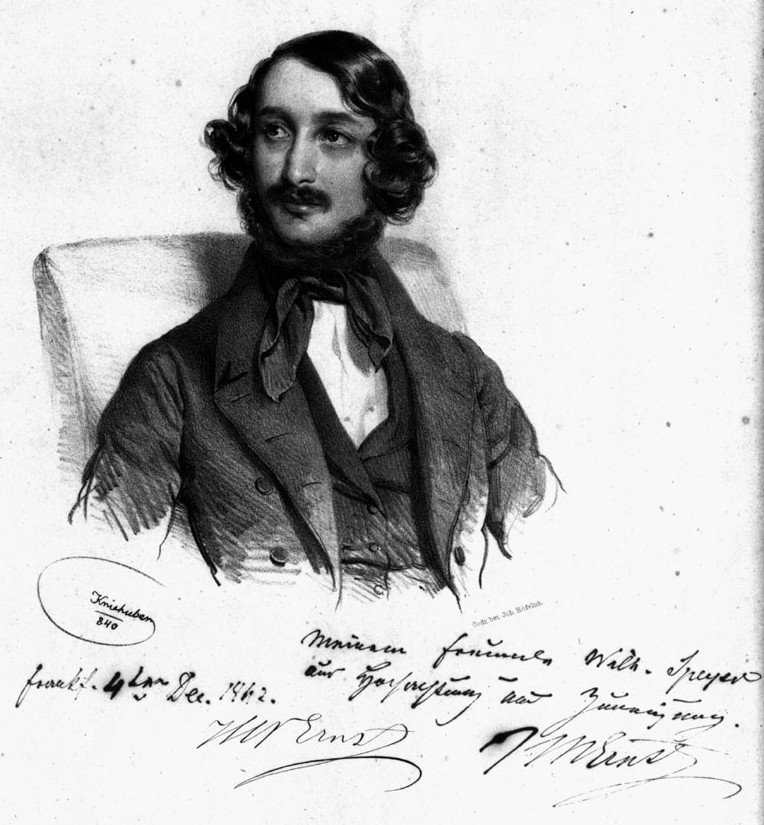 Kriehuber
840
Gedr. bei Joh. Höfelich
Meinem Freunde Wilh. Speyer
aus Hochachtung und Zuneigung.
Frankf. 4ten Dec. 1842.
HWErnst
HWErnst